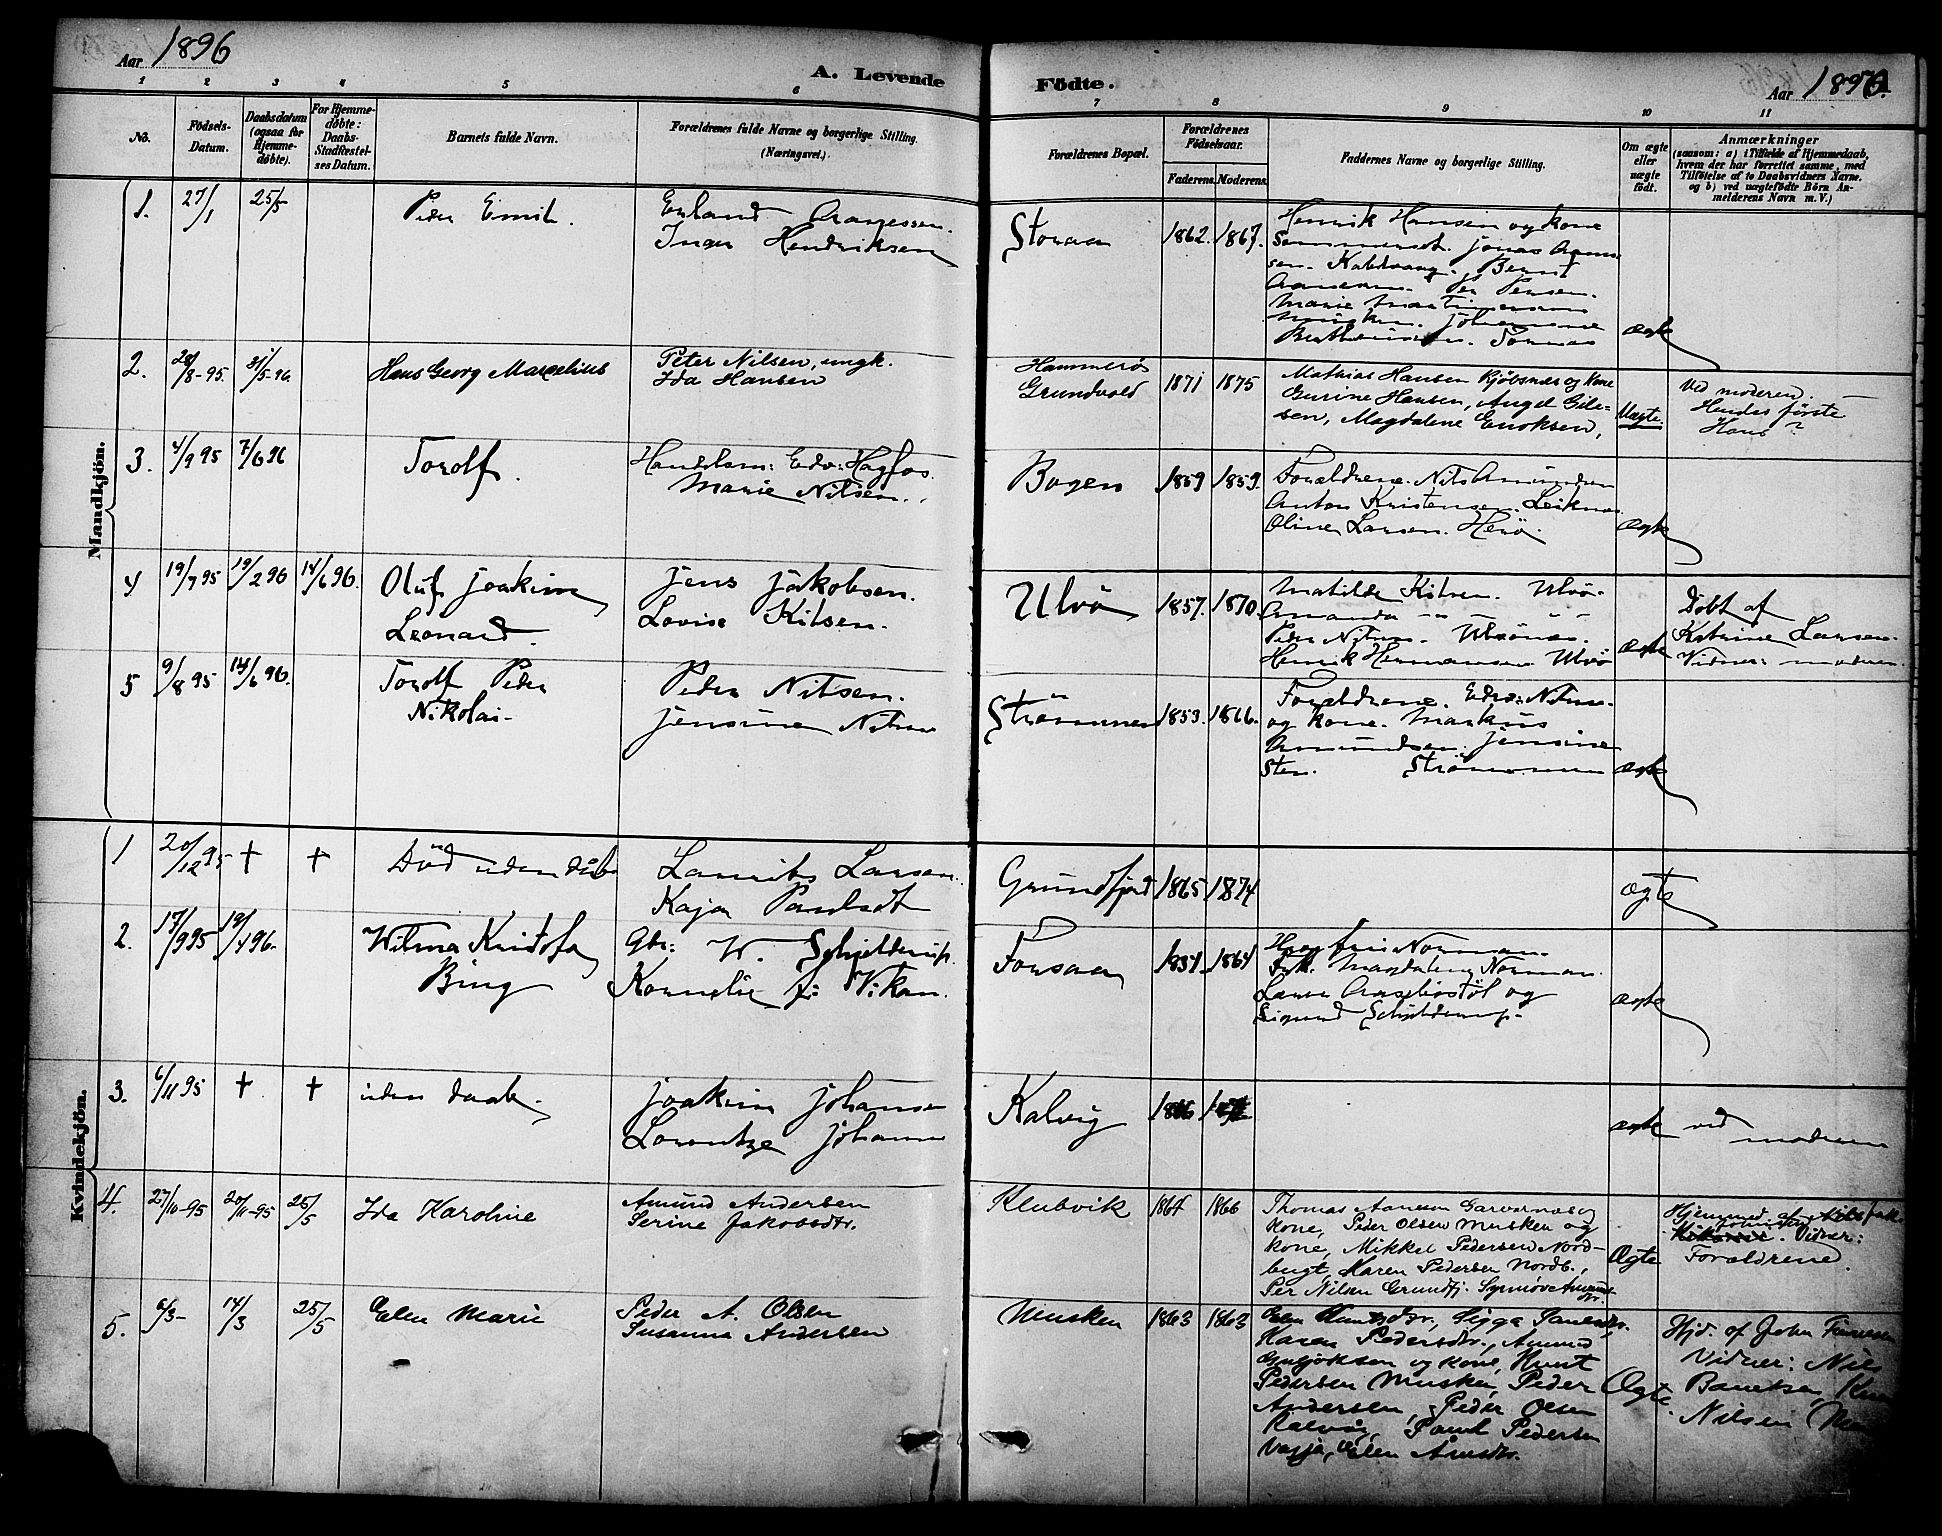 Aar 1896
A. Levende
Födte.
Aar 1896.
1 2 3 4 5 6 7 8 9 10 11
No.
Födsels-
Datum.
Daabsdatum
(ogsaa for
Hjemme-
döbte).
For Hjemme-
döbte:
Daabs-
Stadfæstel-
ses Datum.
Barnets fulde Navn.
Forældrenes fulde Navne og borgerlige Stilling.
(Næringsvei.)
Forældrenes Bopæl.
Forældrenes
Födselsaar.
Faderens. Moderens.
Faddernes Navne og borgerlige Stilling.
Om ægte
eller
uægte
födt.
Anmærkninger
(saasom: a) i Tilfælde af Hjemmedaab,
hvem der har forrettet samme, med
Tilföielse af to Daabsvidners Navne.
og b) ved uægtefödte Börn An-
melderens Navn m. V.)
Mandkjön.
1. 27/1 25/5 Peder Emil.
Erland Aagesen.
Inga Hendriksen
Storaa 1862. 1867.
Henrik Hansen og kone
Sommerset. Jonas
Kaldvaag. Bernt
Per Pensen.
Marie Martinussen
Musken. Johannes
Tornas
ægte
2. 28/8-95. 31/5-96. Hans Georg Marselius
Peter Nilsen, ungk.
Ida Hansen
Hammerö
Grundvold 1871 1875
Mathias Hansen Kjöbsnæs og kone
Gurine Hansen, Angel Gile-
sen, Magdalene Enoksen,
Uægte.
Ved moderen. —
Hendes første
Hans?
3. 4/9 95 7/6 96 Torolf.
Handelsm: Edv: Hagfos.
Marie Nilsen.
Bogen 1859 1859.
Forældrene. Nils Amundsen
Anton Kristensen. Leiknes.
Oline Larsen. Herö.
ægte
4 19/7 95 19/2 96 14/6 96. Oluf Joakim
Leonard.
Jens Jakobsen.
Lovise Kilsen.
Ulvö 1857. 1870.
Matilde Kilsen. Ulvö.
Amanda — " — "
Peder Nilsen. Ulvönæs.
Henrik Hermansen Ulvö
ægte
Döbt af
Katrine Larsen.
Vidner: moderen
5 9/8 95 14/6 96. Torolf Peder
Nikolai-
Peder Nilsen.
Jensine Nilsen
Strömmen 1853. 1866.
Forældrene. Edv: Nilsen
og kone. Markus
Amundsen. Jensine
Sten. Strömmen
ægte
Kvindekjön.
1 20/12 95 + + Död uden dåb
Laurits Larsen.
Kaja Paulsdt
Grundfjord 1865 1874
ægte
2. 17/9 95 19/4 96. Wilma Kristofa
Bing
Gbr: W. Schjelderup.
Kornelie f: Vikan.
Forsaa 1831 1864
Norman
Frk. Magdalene Norman.
og
Sigurd Schjelderup.
ægte
3. 6/11 95 + + uden daab.
Joakim Johansen
Lorentze Johansen
Kalvig 1866
ægte ved
moderen
4. 27/10-95 20/11-95 25/5 Ida Karoline
Amund Andersen
Serine Jakobsdtr.
Klubvik 1864 1866
Thomas Aansen Garvernæs og
kone, Peder Olsen Musken og
kone, Mikkel Pedersen Nord-
bugt, Karen Pedersen Nordb.,
Per Nilsen Grundfj. Synnöve Amunds-
dtr.
Ægte
Hjemmed. af Nils Jak.
Vidner:
Forældrene.
5. 6/3- 14/3 25/5 Elen Marie
Peder A. Olsen
Susanna Andersen
Musken 1863 1863
Elen Knutsdtr, Sigga
Karen Pedersdtr., Amund
og kone, Knut
Pedersen Musken, Peder
Andersen, Peder Olsen
Kalvåg, Paul Pedersen
Vagja, Elen Amsdtr.
Ægte
Hjd. af John
Vidner: Nils
Nilsen